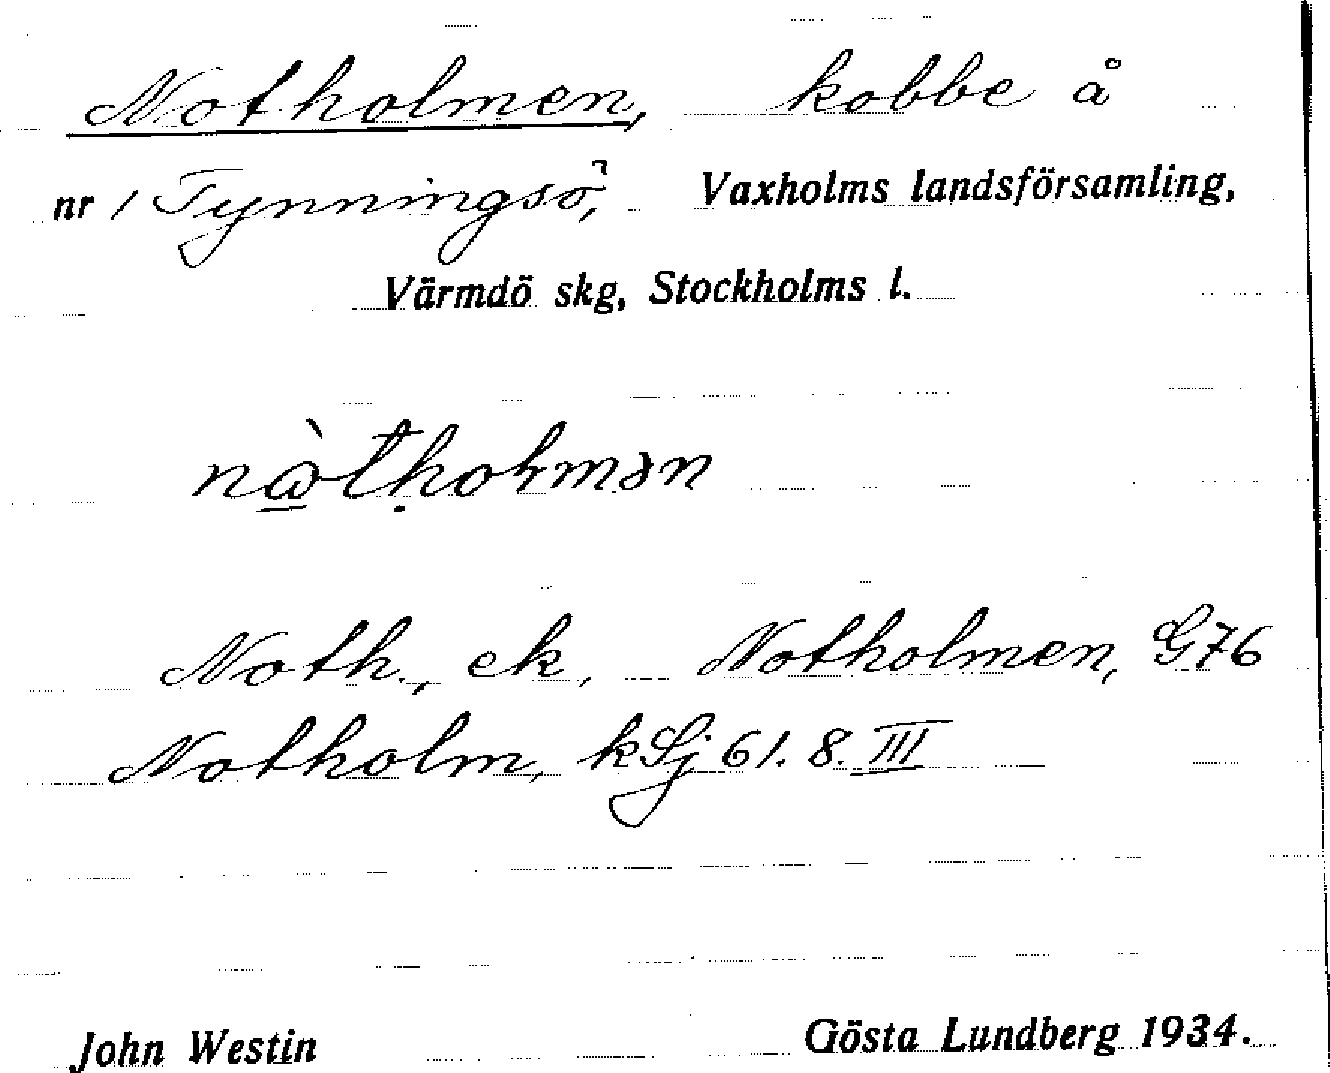 Notholmen, kobbe å
nr 1 Tynningsö, Vaxholms landsförsamling,
Värmdö skg, Stockholms l.
nὼ̲tḥolmən
Noth., ek, Notholmen, G76
Notholm, kSj 61. 8. III
John Westin Gösta Lundberg 1934.